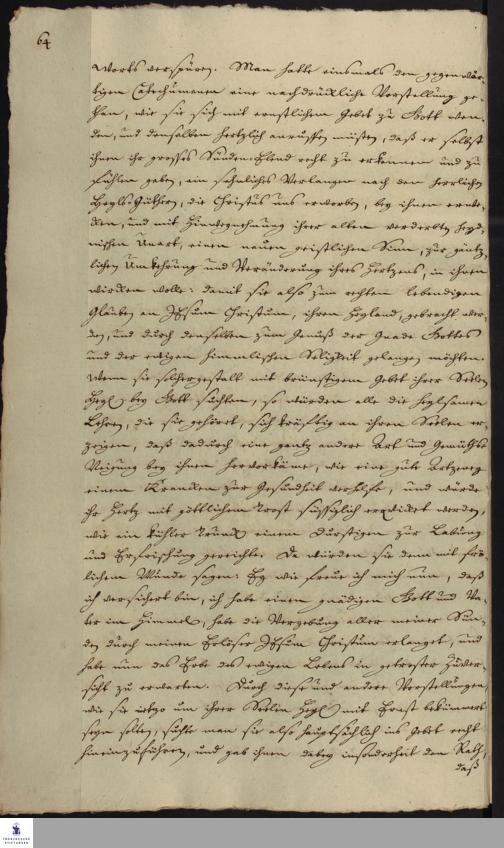 64
Worts verspüren. Man hatte einsmals den gegenwär-
tigen Catechumenen eine nachdrückliche Vorstellung ge-
than, wie sie sich mit ernstlichem Gebet zu Gott wen-
den, und denselben hertzlich anruffen müsten, daß er selbst
ihnen ihr grosses Sünden-Elend recht zu erkennen und zu
fühlen geben, ein sehnliches Verlangen nach den herrlichen
Heyls-Güthern, die Christus uns erworben, bey ihnen erwe-
cken, und mit Hinwegnehmung ihrer alten verderbten heyd-
nischen Unart, einen neuen geistlichen Sinn, zur gäntz-
lichen Umkehrung und Veränderung ihres Hertzens, in ihnen
wircken wolle: damit sie also zum rechten lebendigen
Glauben an JEsum Christum, ihren Heyland, gebracht wer-
den, und durch denselben zum Genuß der Gnade Gottes
und der ewigen himmlischen Seligkeit gelangen möchten.
Wenn sie solchergestalt mit brünstigem Gebet ihrer Seelen
Heyl bey Gott suchten, so würden alle die heylsamen
Lehren, die sie gehöret, sich kräftig an ihren Seelen er-
zeigen, daß dadurch eine gantz andere Art und Gemüths-
Neigung bey ihnen hervorkäme, wie eine gute Artzney
einem Krancken zur Gesundheit verhilft, und würde
ihr Hertz mit göttlichem Trost süssiglich erquicket werden,
wie ein kühler Trunck einem Durstigen zur Labung
und Erfrischung gereichte. Da würden sie denn mit frö-
lichem Munde sagen: Ey wie freue ich mich nun, daß
ich versichert bin, ich habe einen gnädigen Gott und Va-
ter im Himmel, habe die Vergebung aller meiner Sün-
den durch meinen Erlöser JEsum Christum erlanget, und
habe nun das Erbe des ewigen Lebens in getroster Zuver-
sicht zu erwarten. Durch diese und andere Vorstellungen,
wie sie ietzo um ihrer Seelen Heyl mit Ernst bekümmert
seyn solten, suchte man sie also hauptsächlich ins Gebet recht
hineinzuführen, und gab ihnen dabey insonderheit den Rath,
daß
FRANCKESCHE
STIFTUNGEN